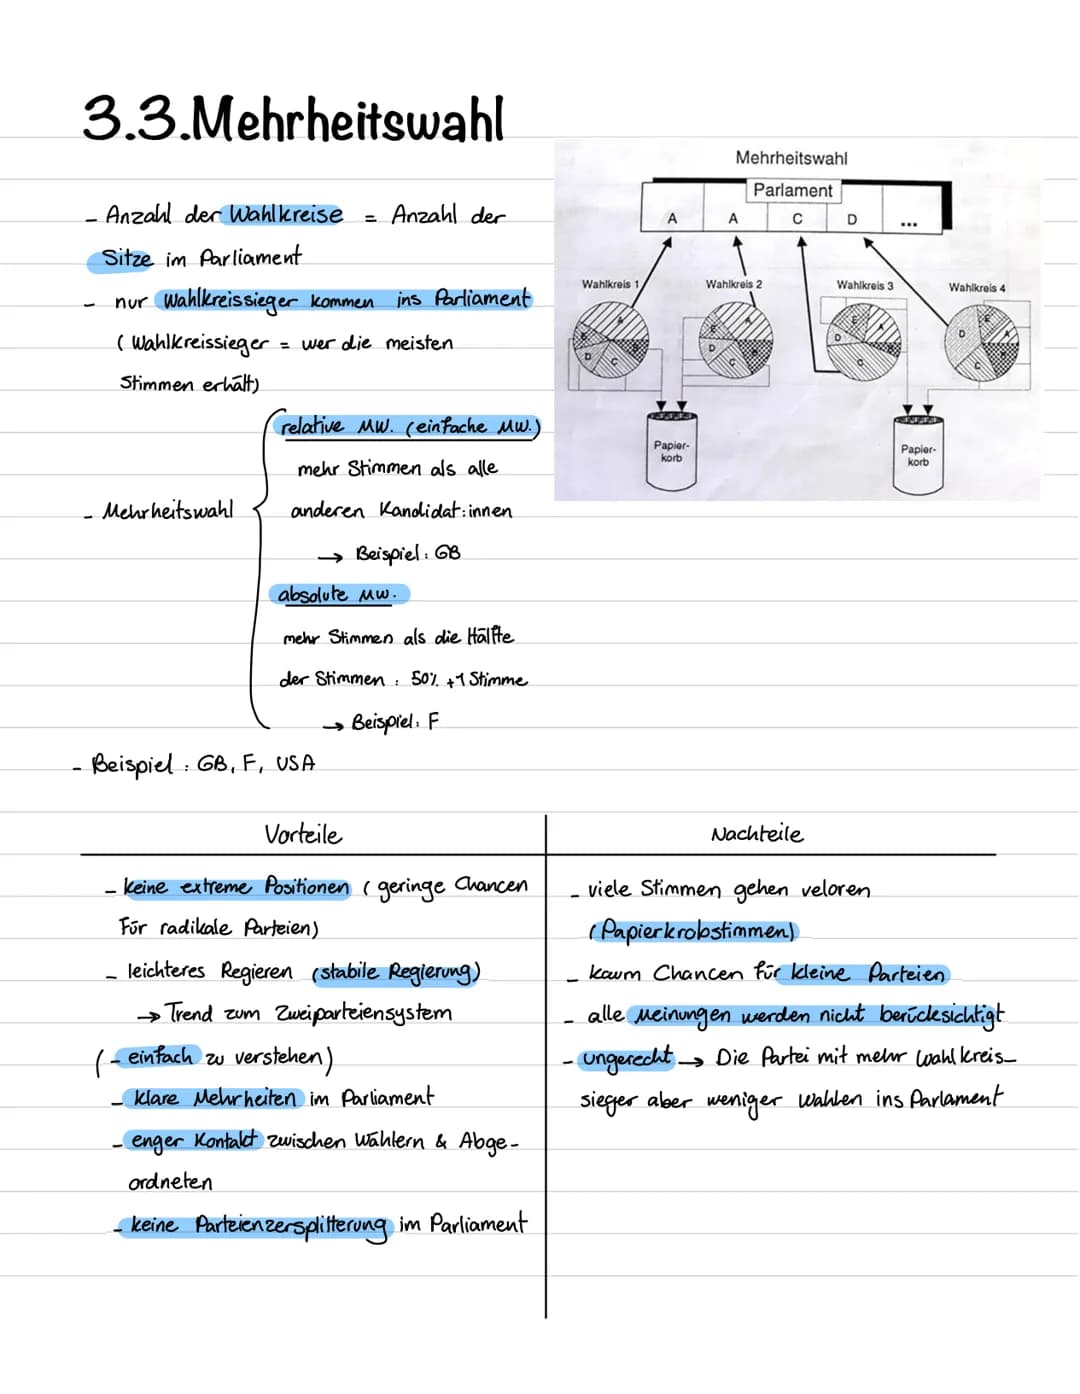 3.3.Mehrheitswahl
- Anzahl der Wahlkreise = Anzahl der
Sitze im Parliament
- nur Wahlkreissieger kommen ins Parliament
( Wahlkreissieger = wer die meisten
Stimmen erhält)
relative MW. (einfache MW.)
mehr Stimmen als alle
- Mehrheitswahl
anderen Kandidat:innen
→ Beispiel: GB
absolute MW.
mehr Stimmen als die Hälfte
der Stimmen : 50% +1 Stimme
→ Beispiel: F
- Beispiel : GB, F, USA
Mehrheitswahl
Parlament
A A C D ...
Wahlkreis 1 Wahlkreis 2 Wahlkreis 3 Wahlkreis 4
E A B C D
E A B C D
E A B C D
E A B C D
Papier-
korb
Papier-
korb
Vorteile
- keine extreme Positionen ( geringe Chancen
für radikale Parteien)
- leichteres Regieren (stabile Regierung)
→ Trend zum Zweiparteiensystem
(- einfach zu verstehen)
- klare Mehrheiten im Parliament
- enger Kontakt zwischen Wählern & Abge-
ordneten
- keine Parteienzersplitterung im Parliament
Nachteile
- viele Stimmen gehen veloren
(Papierkrobstimmen)
- kaum Chancen für kleine Parteien
- alle Meinungen werden nicht berücksichtigt
- ungerecht → Die Partei mit mehr Wahlkreis-
sieger aber weniger wahlen ins Parlament